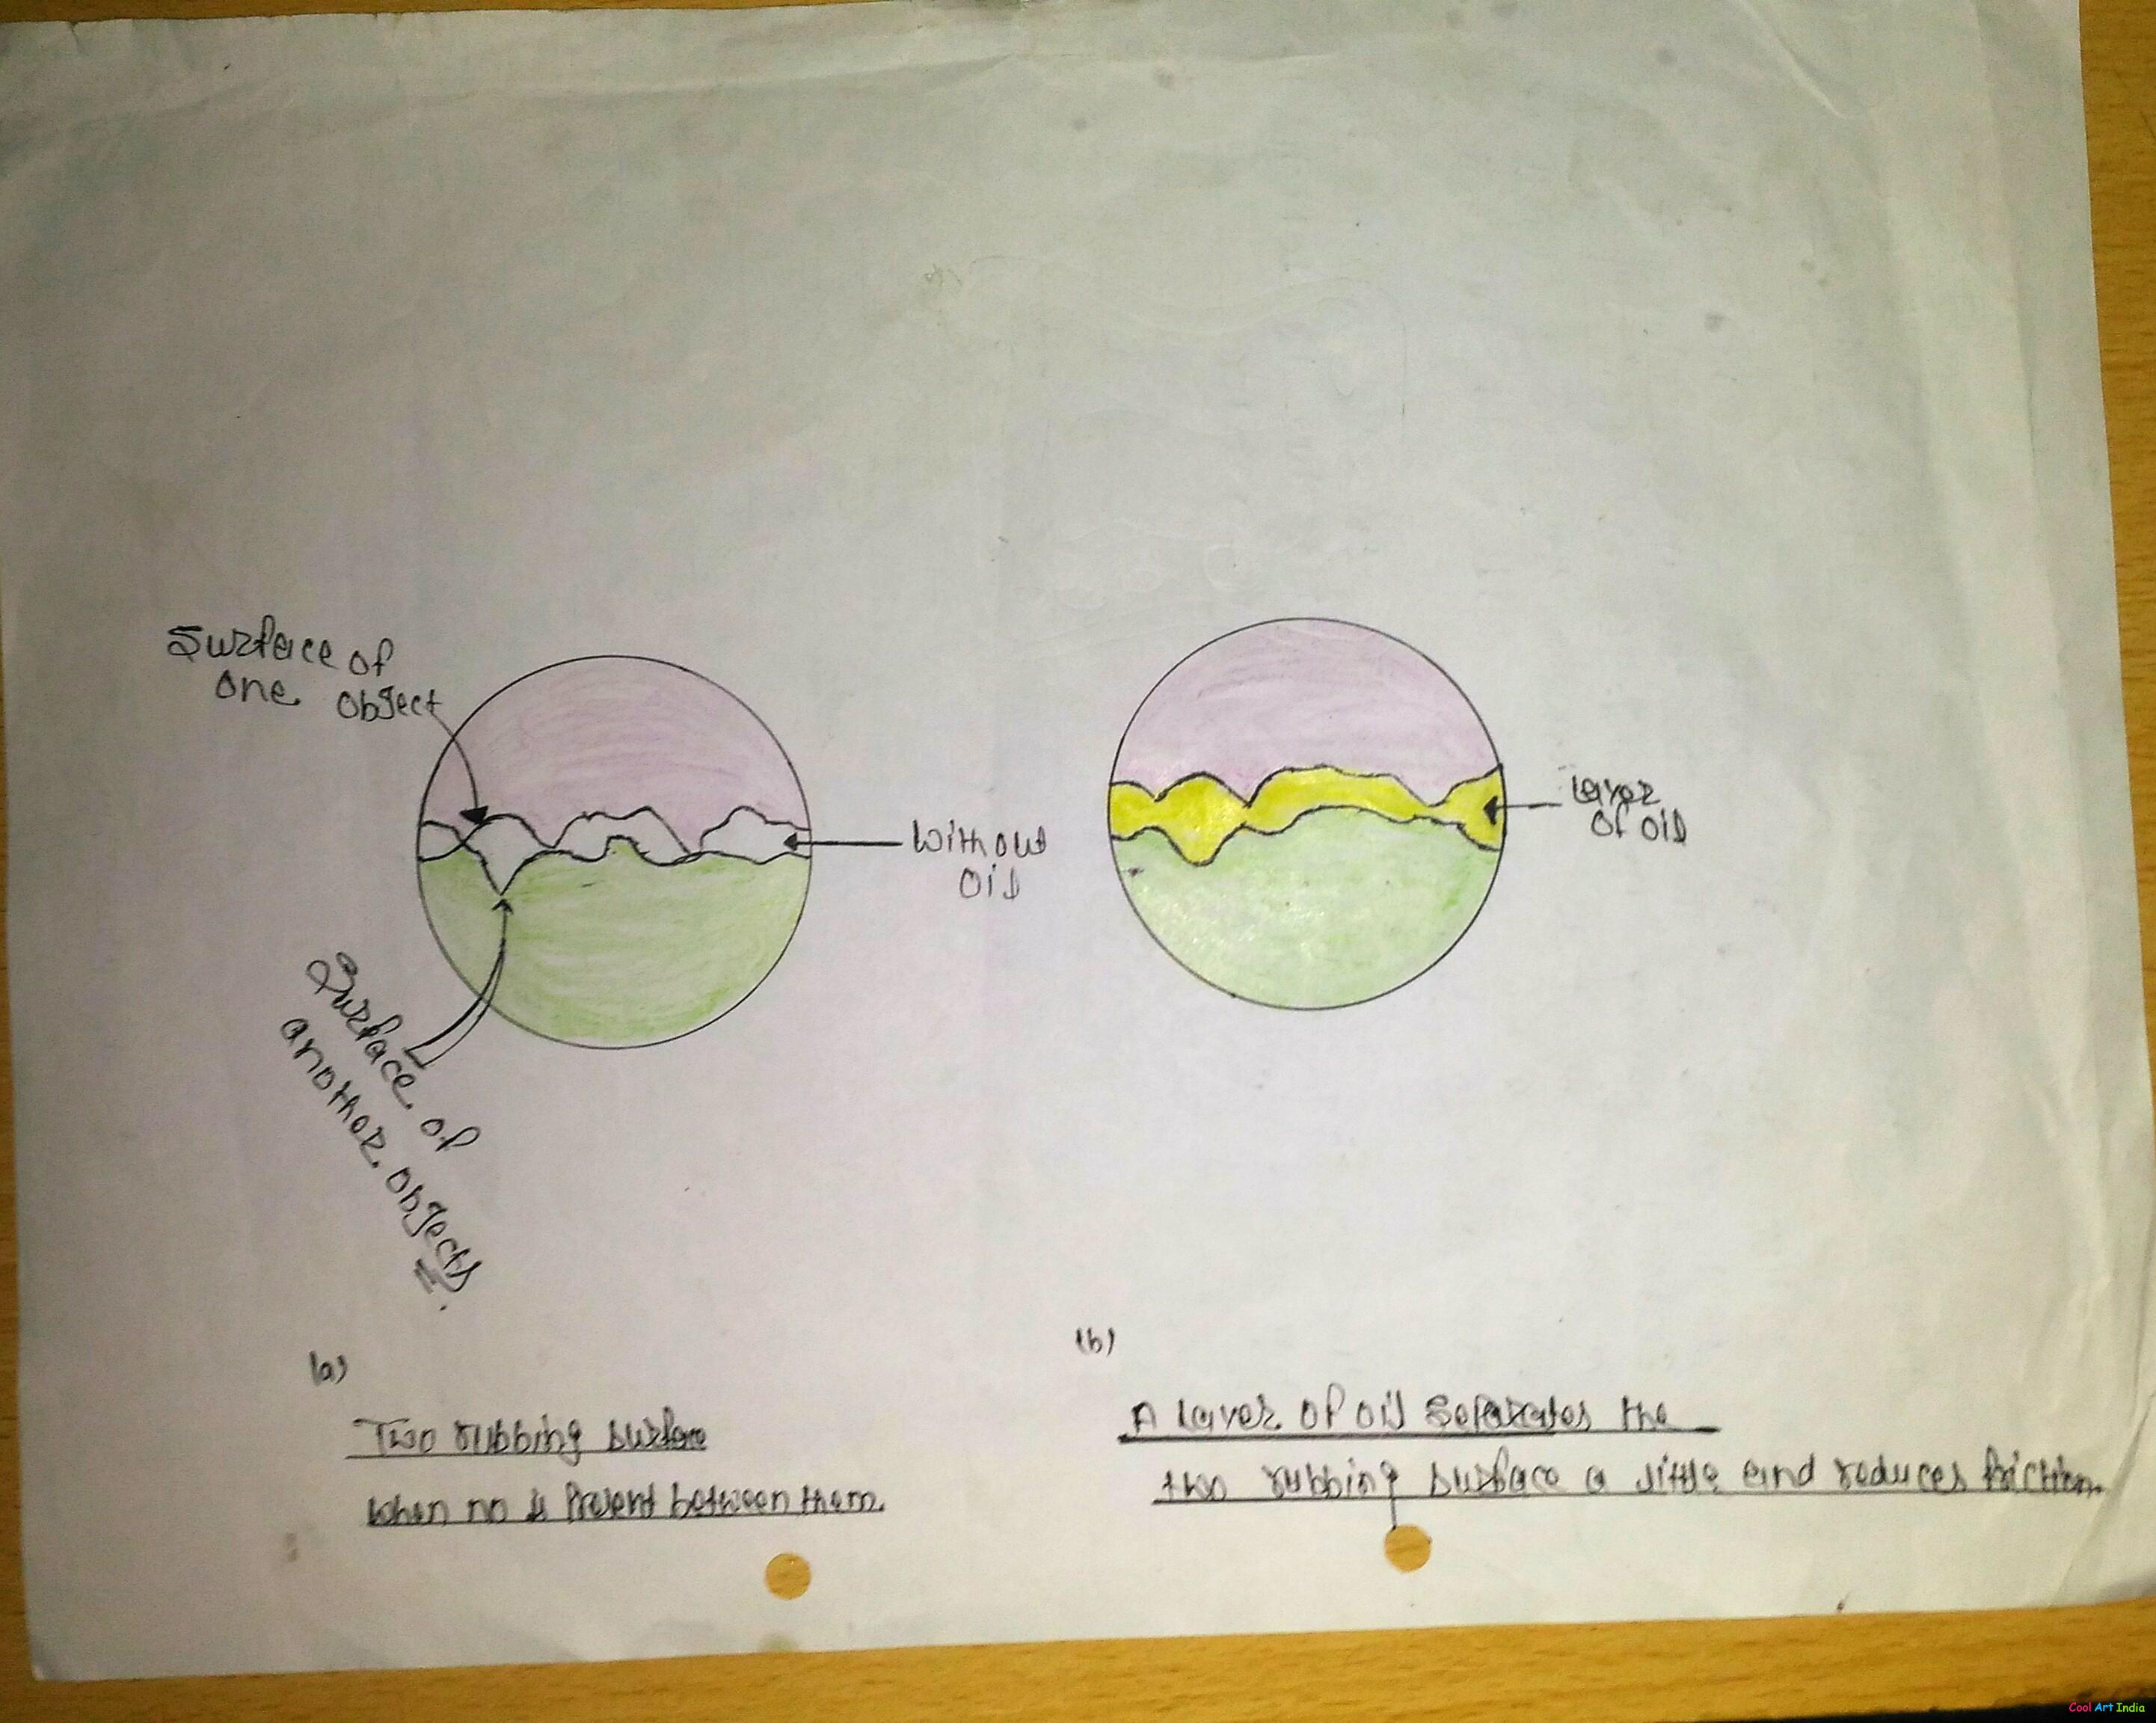 Surface of
one object
Without
oil
Surface of
another object
Layer
of oil
(a)
Two rubbing surface
When no is Present between them.
(b)
A layer of oil Seperates the
two rubbing surface a little and reduces friction.
Cool Art India